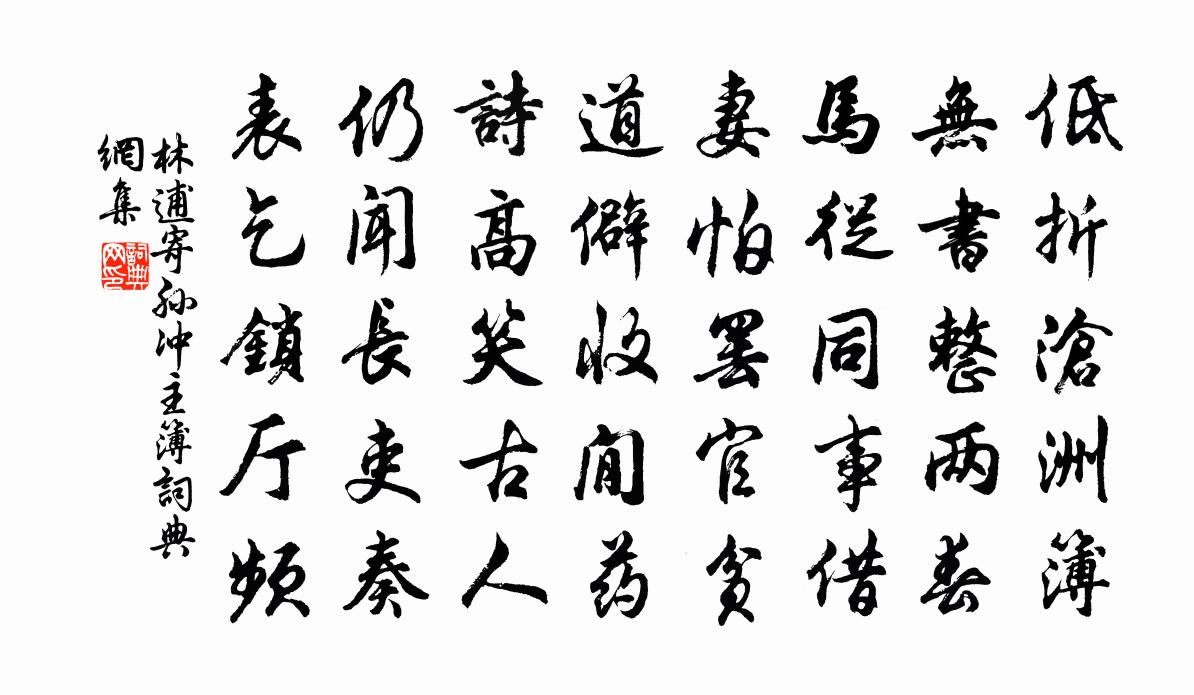 低折滄洲簿
無書整两春
馬從同事借
妻怕罢官貧
道僻收閒药
詩高笑古人
仍聞長吏奏
表乞鎖厅頻
林逋寄孙冲主簿詞典
網集
詞典網印